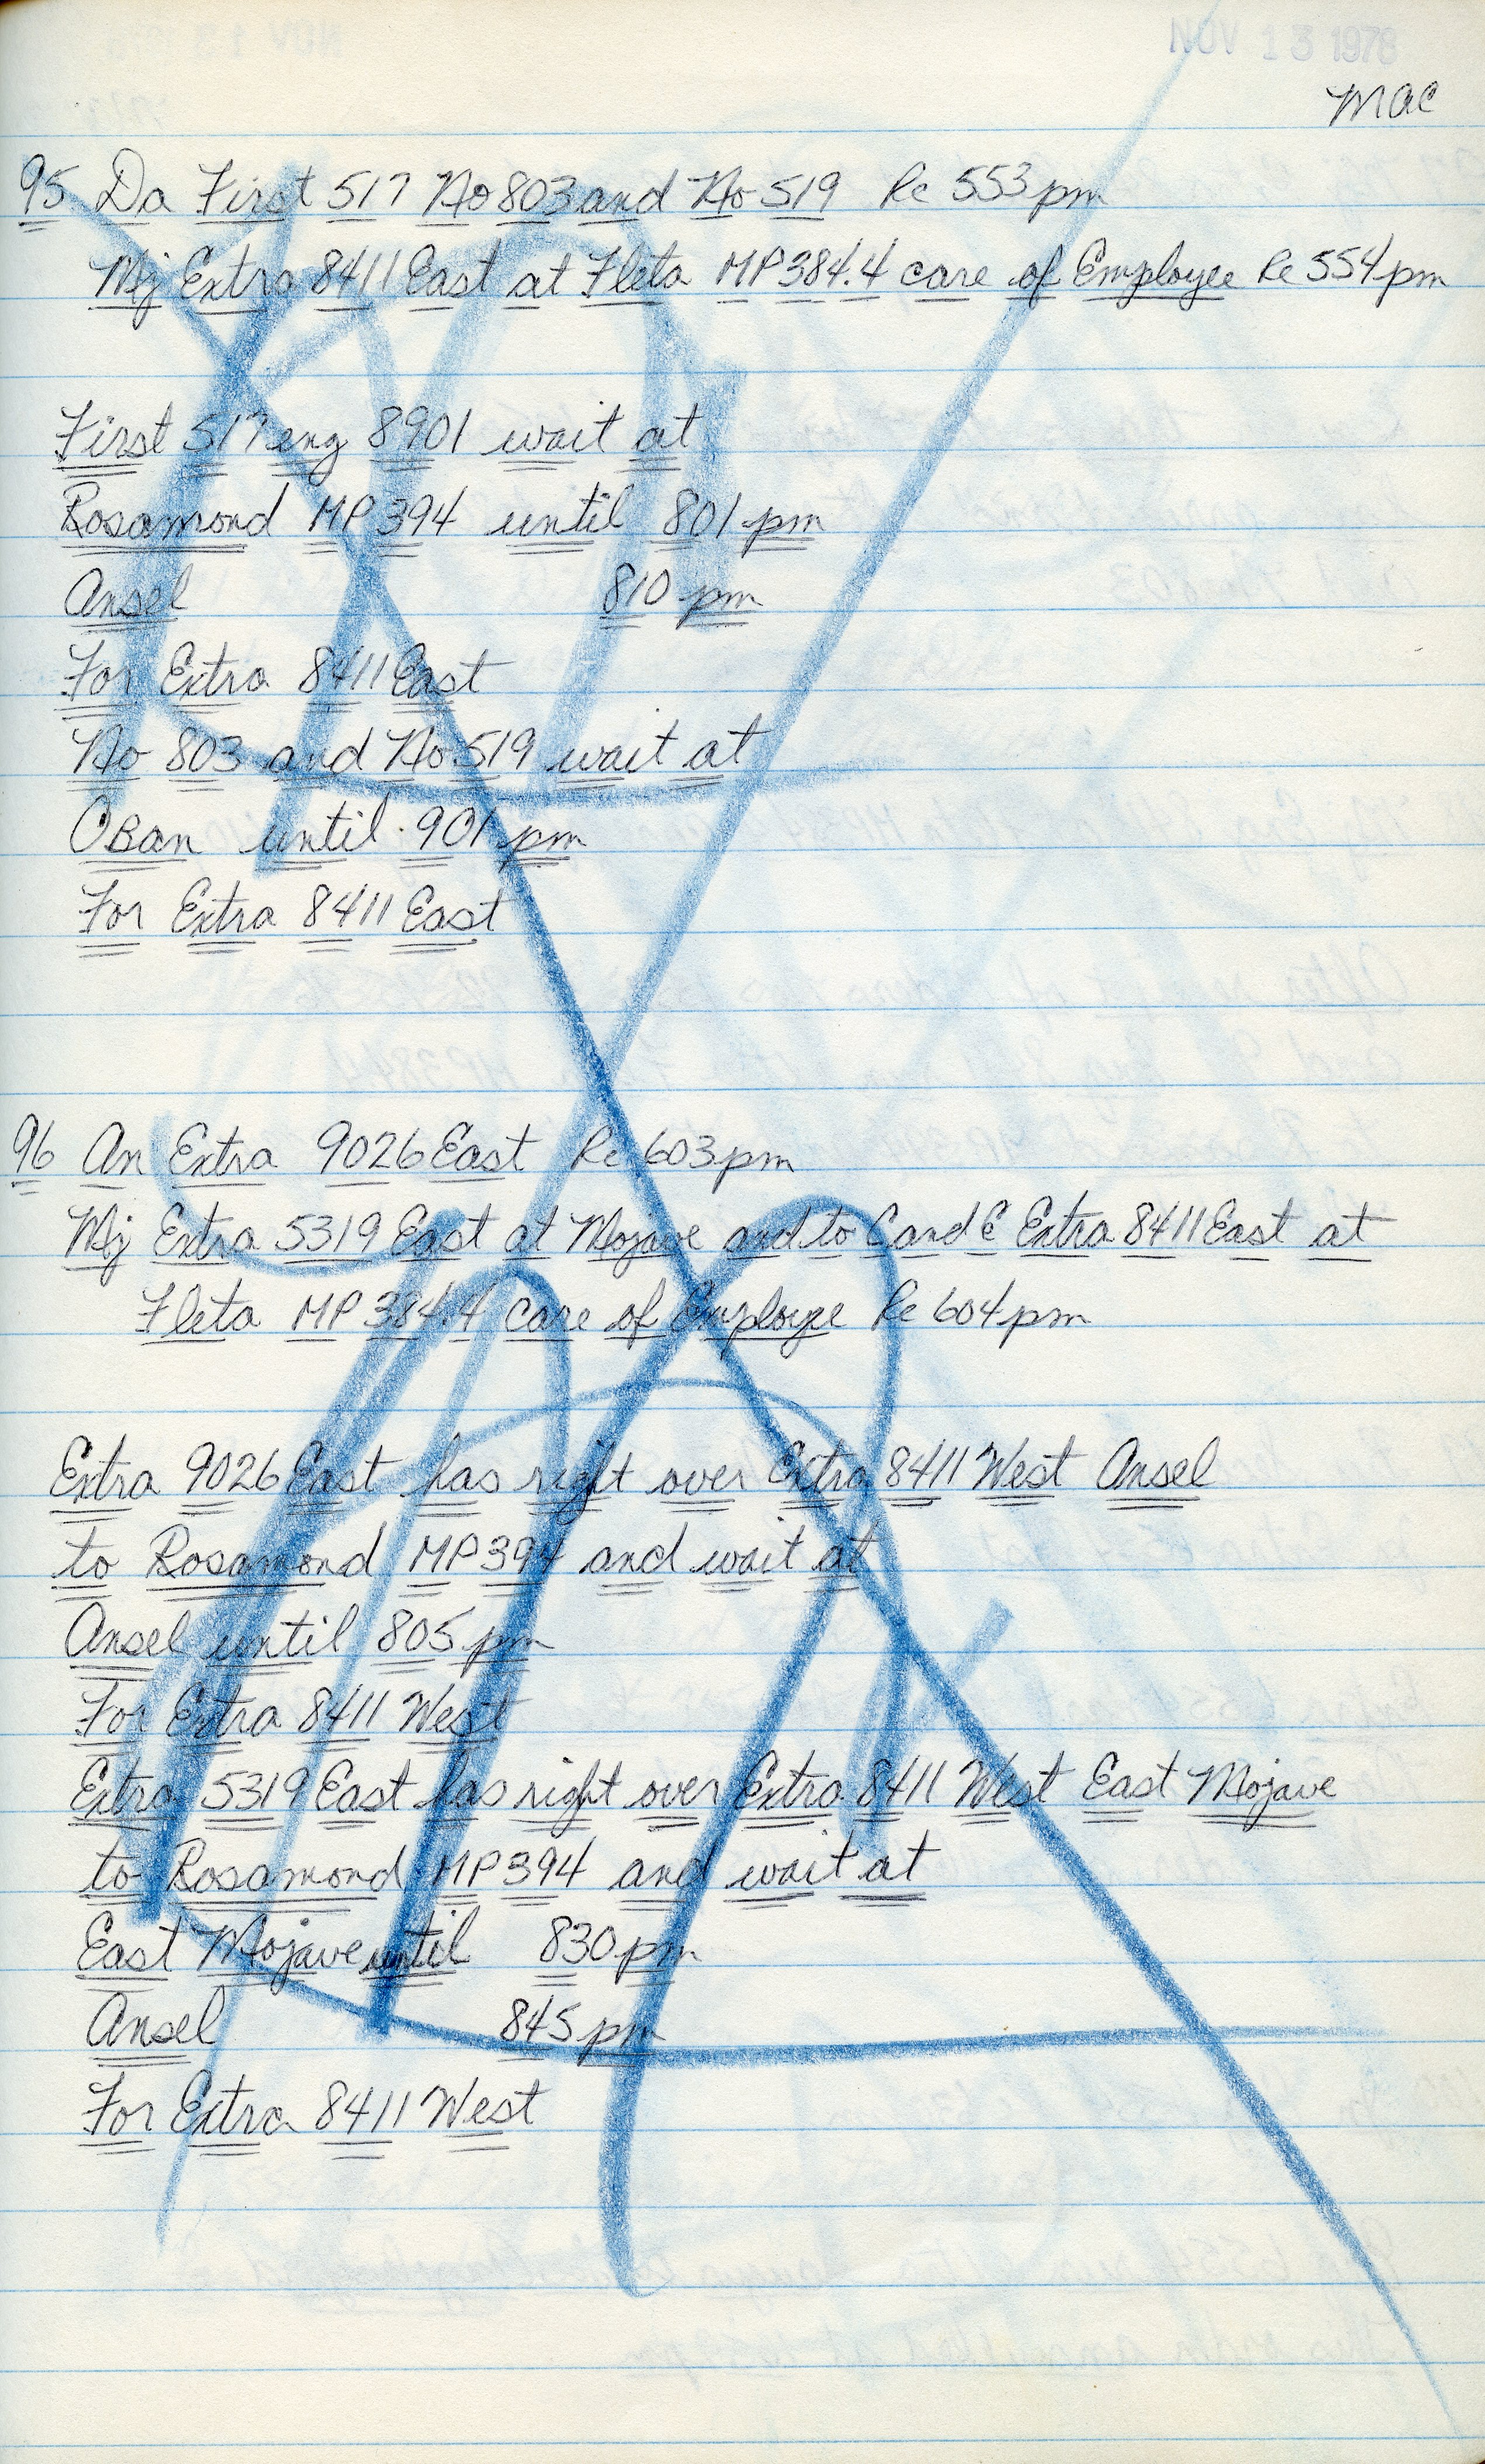 NOV 13 1978
MAC
95 Da First 517 No 803 and No 519 Re 553 pm
Mj Extra 8411 East at Fleta MP 384.4 care of Employee Re 554 pm
First 517 eng 8901 wait at
Rosamond MP 394 until 801 pm
Ansel 810 pm
For Extra 8411 East
No 803 and No 519 wait at
Oban until 901 pm
For Extra 8411 East
96 An Extra 9026 East Re 603 pm
Mj Extra 5319 East at Mojave and to C and E Extra 8411 East at
Fleta MP 384.4 care of Employe Re 604 pm
Extra 9026 East has right over Extra 8411 West Ansel
to Rosamond MP 394 and wait at
Ansel until 805 pm
For Extra 8411 West
Extra 5319 East has right over Extra 8411 West East Mojave
to Rosamond MP 394 and wait at
East Mojave until 830 pm
Ansel 845 pm
For Extra 8411 West